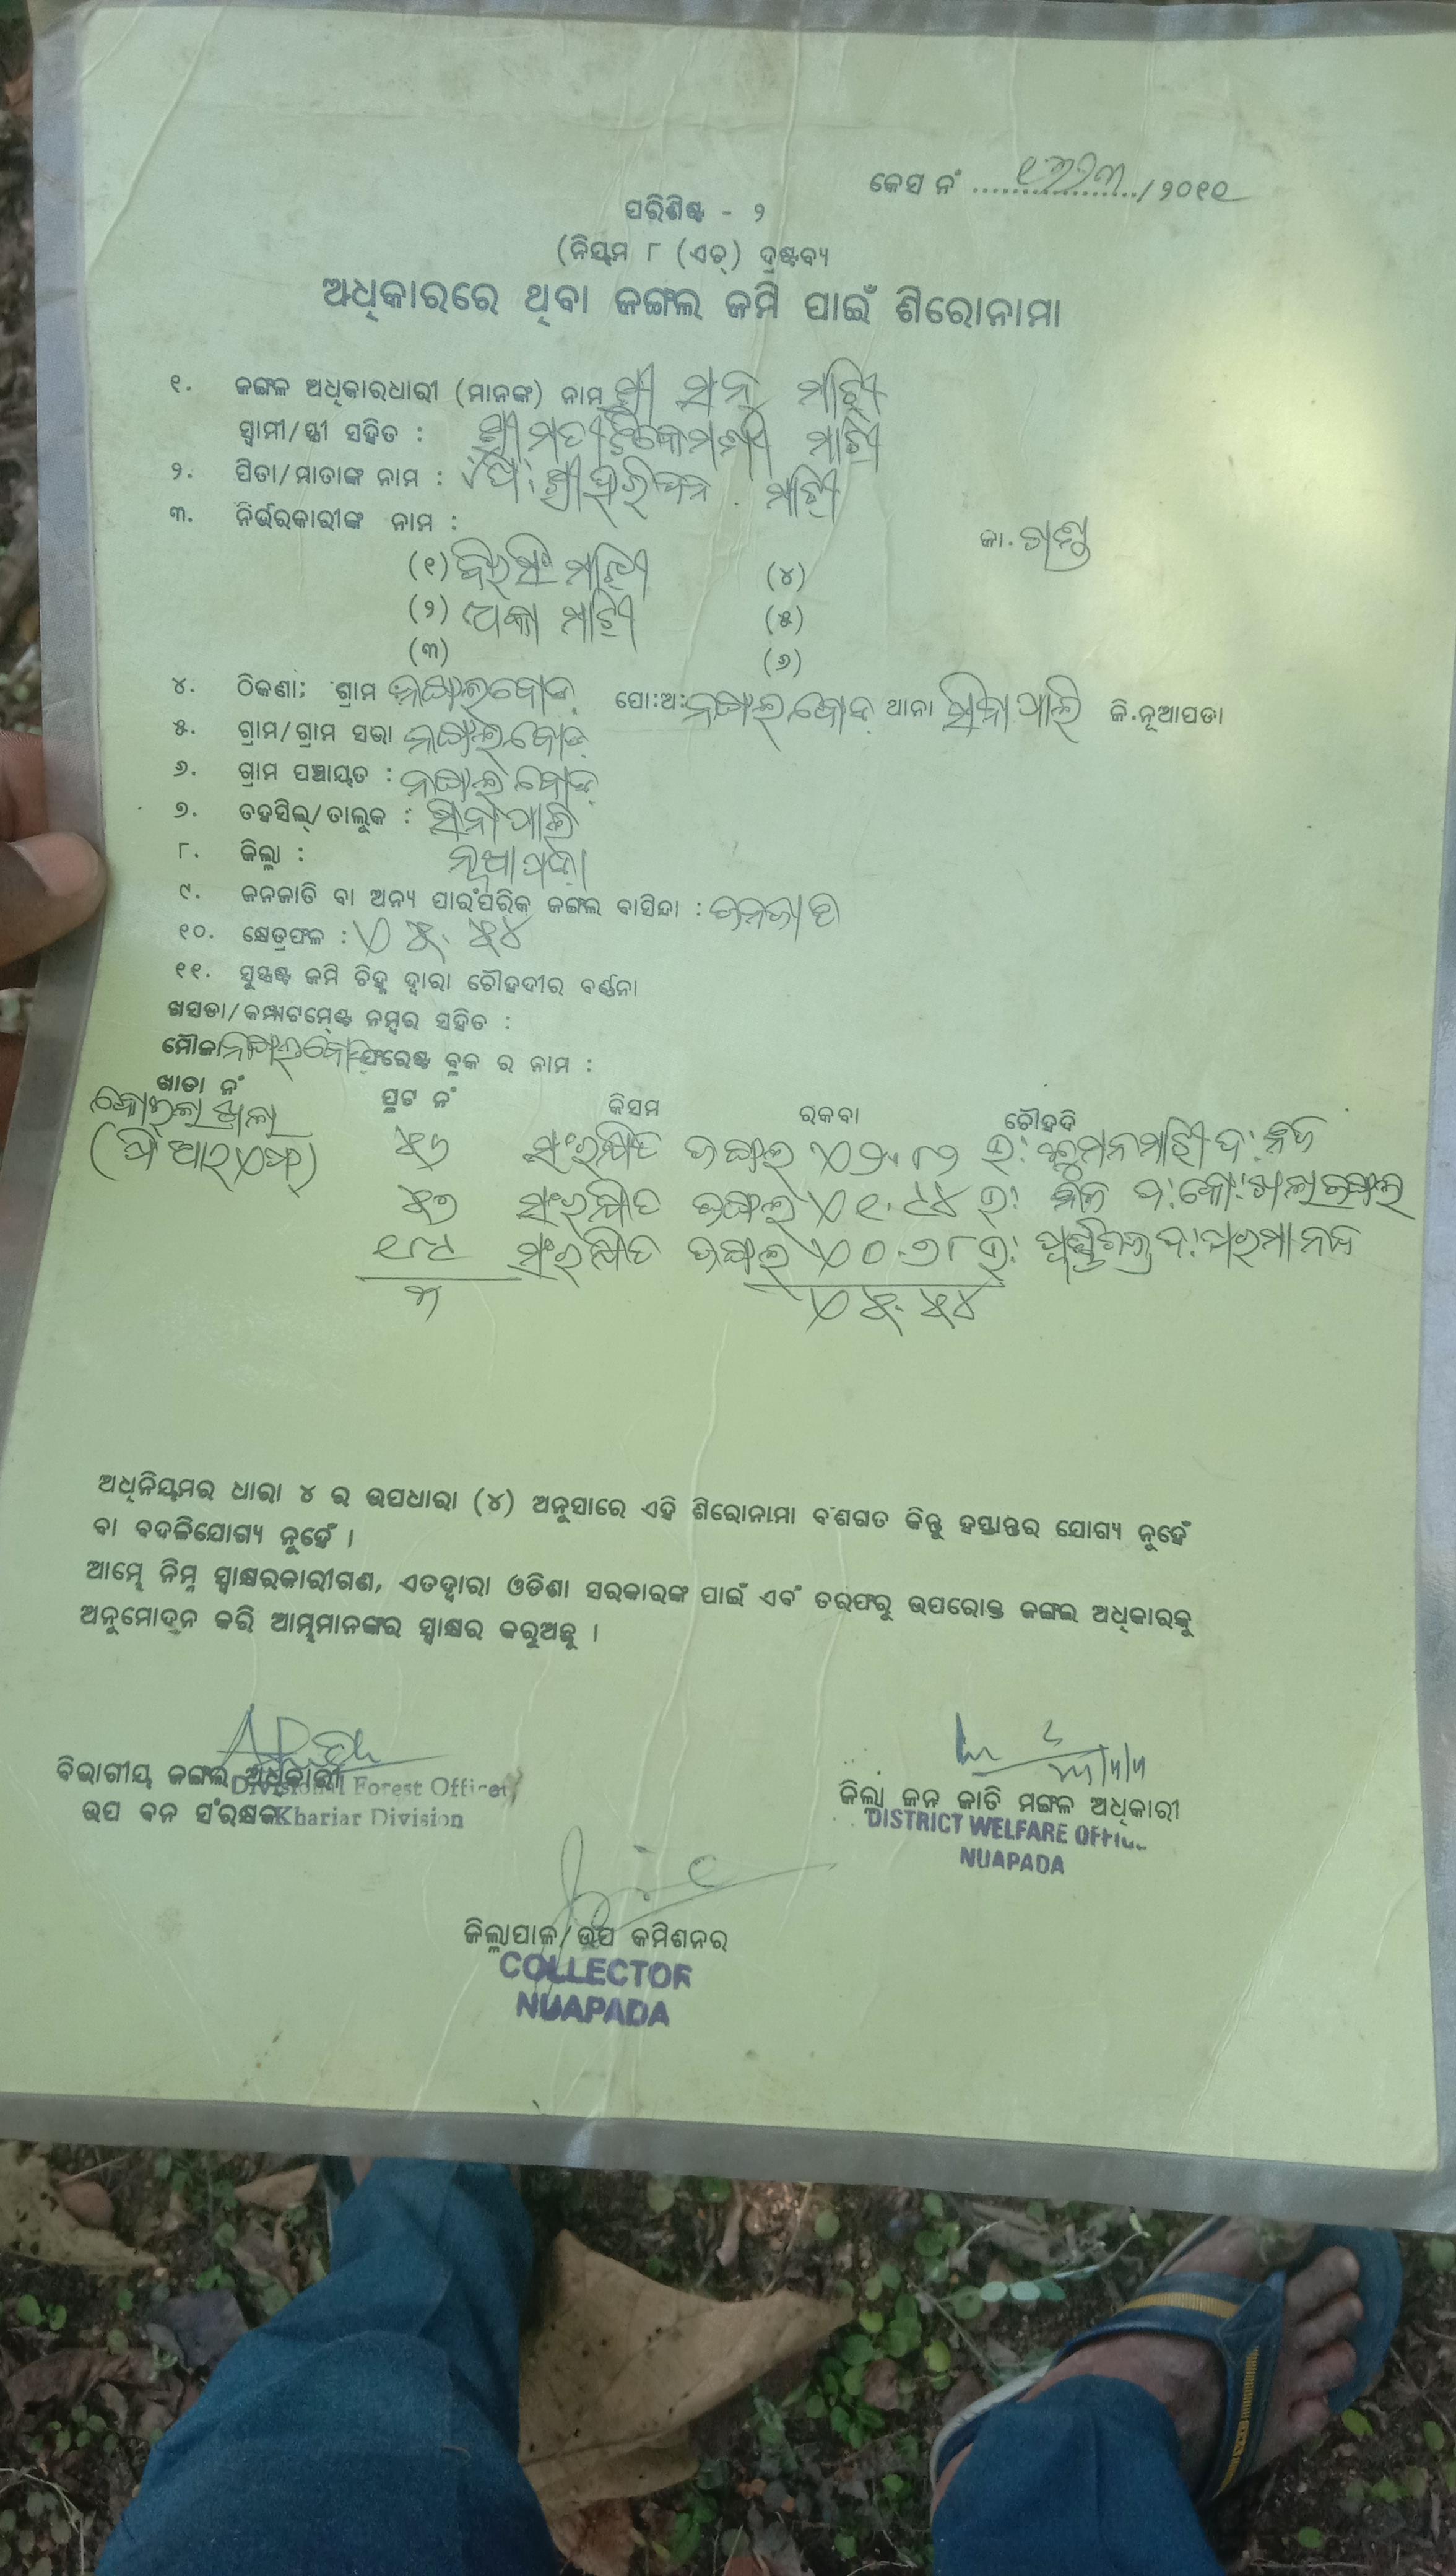 କେସ ନଂ ................../ ୨୦୧୧
ପରିଶିଷ୍ଟ - ୨
(ନିୟମ ୮ (ଏଚ୍) ଦ୍ରଷ୍ଟବ୍ୟ
ଅଧିକାରରେ ଥିବା ଜଙ୍ଗଲ ଜମି ପାଇଁ ଶିରୋନାମା
୧. ଜଙ୍ଗଳ ଅଧିକାରଧାରୀ (ମାନଙ୍କ) ନାମ ଶ୍ରୀ ସନୁ ମାଝି
ସ୍ଵାମୀ/ସ୍ତ୍ରୀ ସହିତ : ଶ୍ରୀମତୀ ମାଝି
୨. ପିତା/ମାତାଙ୍କ ନାମ : ମାଝି
୩. ନିର୍ଭରକାରୀଙ୍କ ନାମ :
ଜା.
(୧) ମାଝି (୪)
(୨) ମାଝି (୫)
(୩) (୬)
୪. ଠିକଣା; ଗ୍ରାମ ନଙ୍ଗଲବୋଡ଼ ପୋ:ଅ: ନଙ୍ଗଲବୋଡ଼ ଥାନା ସିନାପାଲି ଜି.ନୂଆପଡା
୫. ଗ୍ରାମ/ଗ୍ରାମ ସଭା ନଙ୍ଗଲବୋଡ଼
୬. ଗ୍ରାମ ପଞ୍ଚାୟତ : ନଙ୍ଗଲବୋଡ଼
୭. ତହସିଲ୍/ତାଲୁକ : ସିନାପାଲି
୮. ଜିଲ୍ଲା : ନୂଆପଡ଼ା
୯. ଜନଜାତି ବା ଅନ୍ୟ ପାରଂପରିକ ଜଙ୍ଗଲ ବାସିନ୍ଦା : ଜନଜାତି
୧୦. କ୍ଷେତ୍ରଫଳ : ଏ ୫.୫୪
୧୧. ସୁସ୍ପଷ୍ଟ ଜମି ଚିହ୍ନ ଦ୍ଵାରା ଚୌହଦୀର ବର୍ଣ୍ଣନା
ଖସଡା/କମ୍ପାଟମେଣ୍ଟ ନମ୍ବର ସହିତ :
ମୌଜା ନଙ୍ଗଲବୋଡ଼ ଫରେଷ୍ଟ ବ୍ଲକ ର ନାମ :
ଖାତା ନଂ ପ୍ଲଟ ନଂ କିସମ ରକବା ଚୌହଦି
(ପି ଆର ଏଫ୍) ୫୬ ସଂରକ୍ଷିତ ଜଙ୍ଗଲ ଏ ୨.୮୨
୫୭ ସଂରକ୍ଷିତ ଜଙ୍ଗଲ ଏ ୧.୯୪
୧୮୯ ସଂରକ୍ଷିତ ଜଙ୍ଗଲ ଏ ୦.୭୮
୩ ଏ ୫.୫୪
ଅଧିନିୟମର ଧାରା ୪ ର ଉପଧାରା (୪) ଅନୁସାରେ ଏହି ଶିରୋନାମା ବଂଶଗତ କିନ୍ତୁ ହସ୍ତାନ୍ତର ଯୋଗ୍ୟ ନୁହେଁ
ବା ବଦଳିଯୋଗ୍ୟ ନୁହେଁ ।
ଆମ୍ଭେ ନିମ୍ନ ସ୍ଵାକ୍ଷରକାରୀଗଣ, ଏତଦ୍ଵାରା ଓଡିଶା ସରକାରଙ୍କ ପାଇଁ ଏବଂ ତରଫରୁ ଉପରୋକ୍ତ ଜଙ୍ଗଲ ଅଧିକାରକୁ
ଅନୁମୋଦନ କରି ଆମ୍ଭମାନଙ୍କର ସ୍ଵାକ୍ଷର କରୁଅଛୁ ।
ବିଭାଗୀୟ ଜଙ୍ଗଲ ଅଧିକାରୀ
Divisional Forest Officer
ଉପ ବନ ସଂରକ୍ଷକ
Khariar Division
ଜିଲ୍ଲା ଜନ ଜାତି ମଙ୍ଗଳ ଅଧିକାରୀ
DISTRICT WELFARE OFFICE
NUAPADA
ଜିଲ୍ଲାପାଳ/ଉପ କମିଶନର
COLLECTOR
NUAPADA